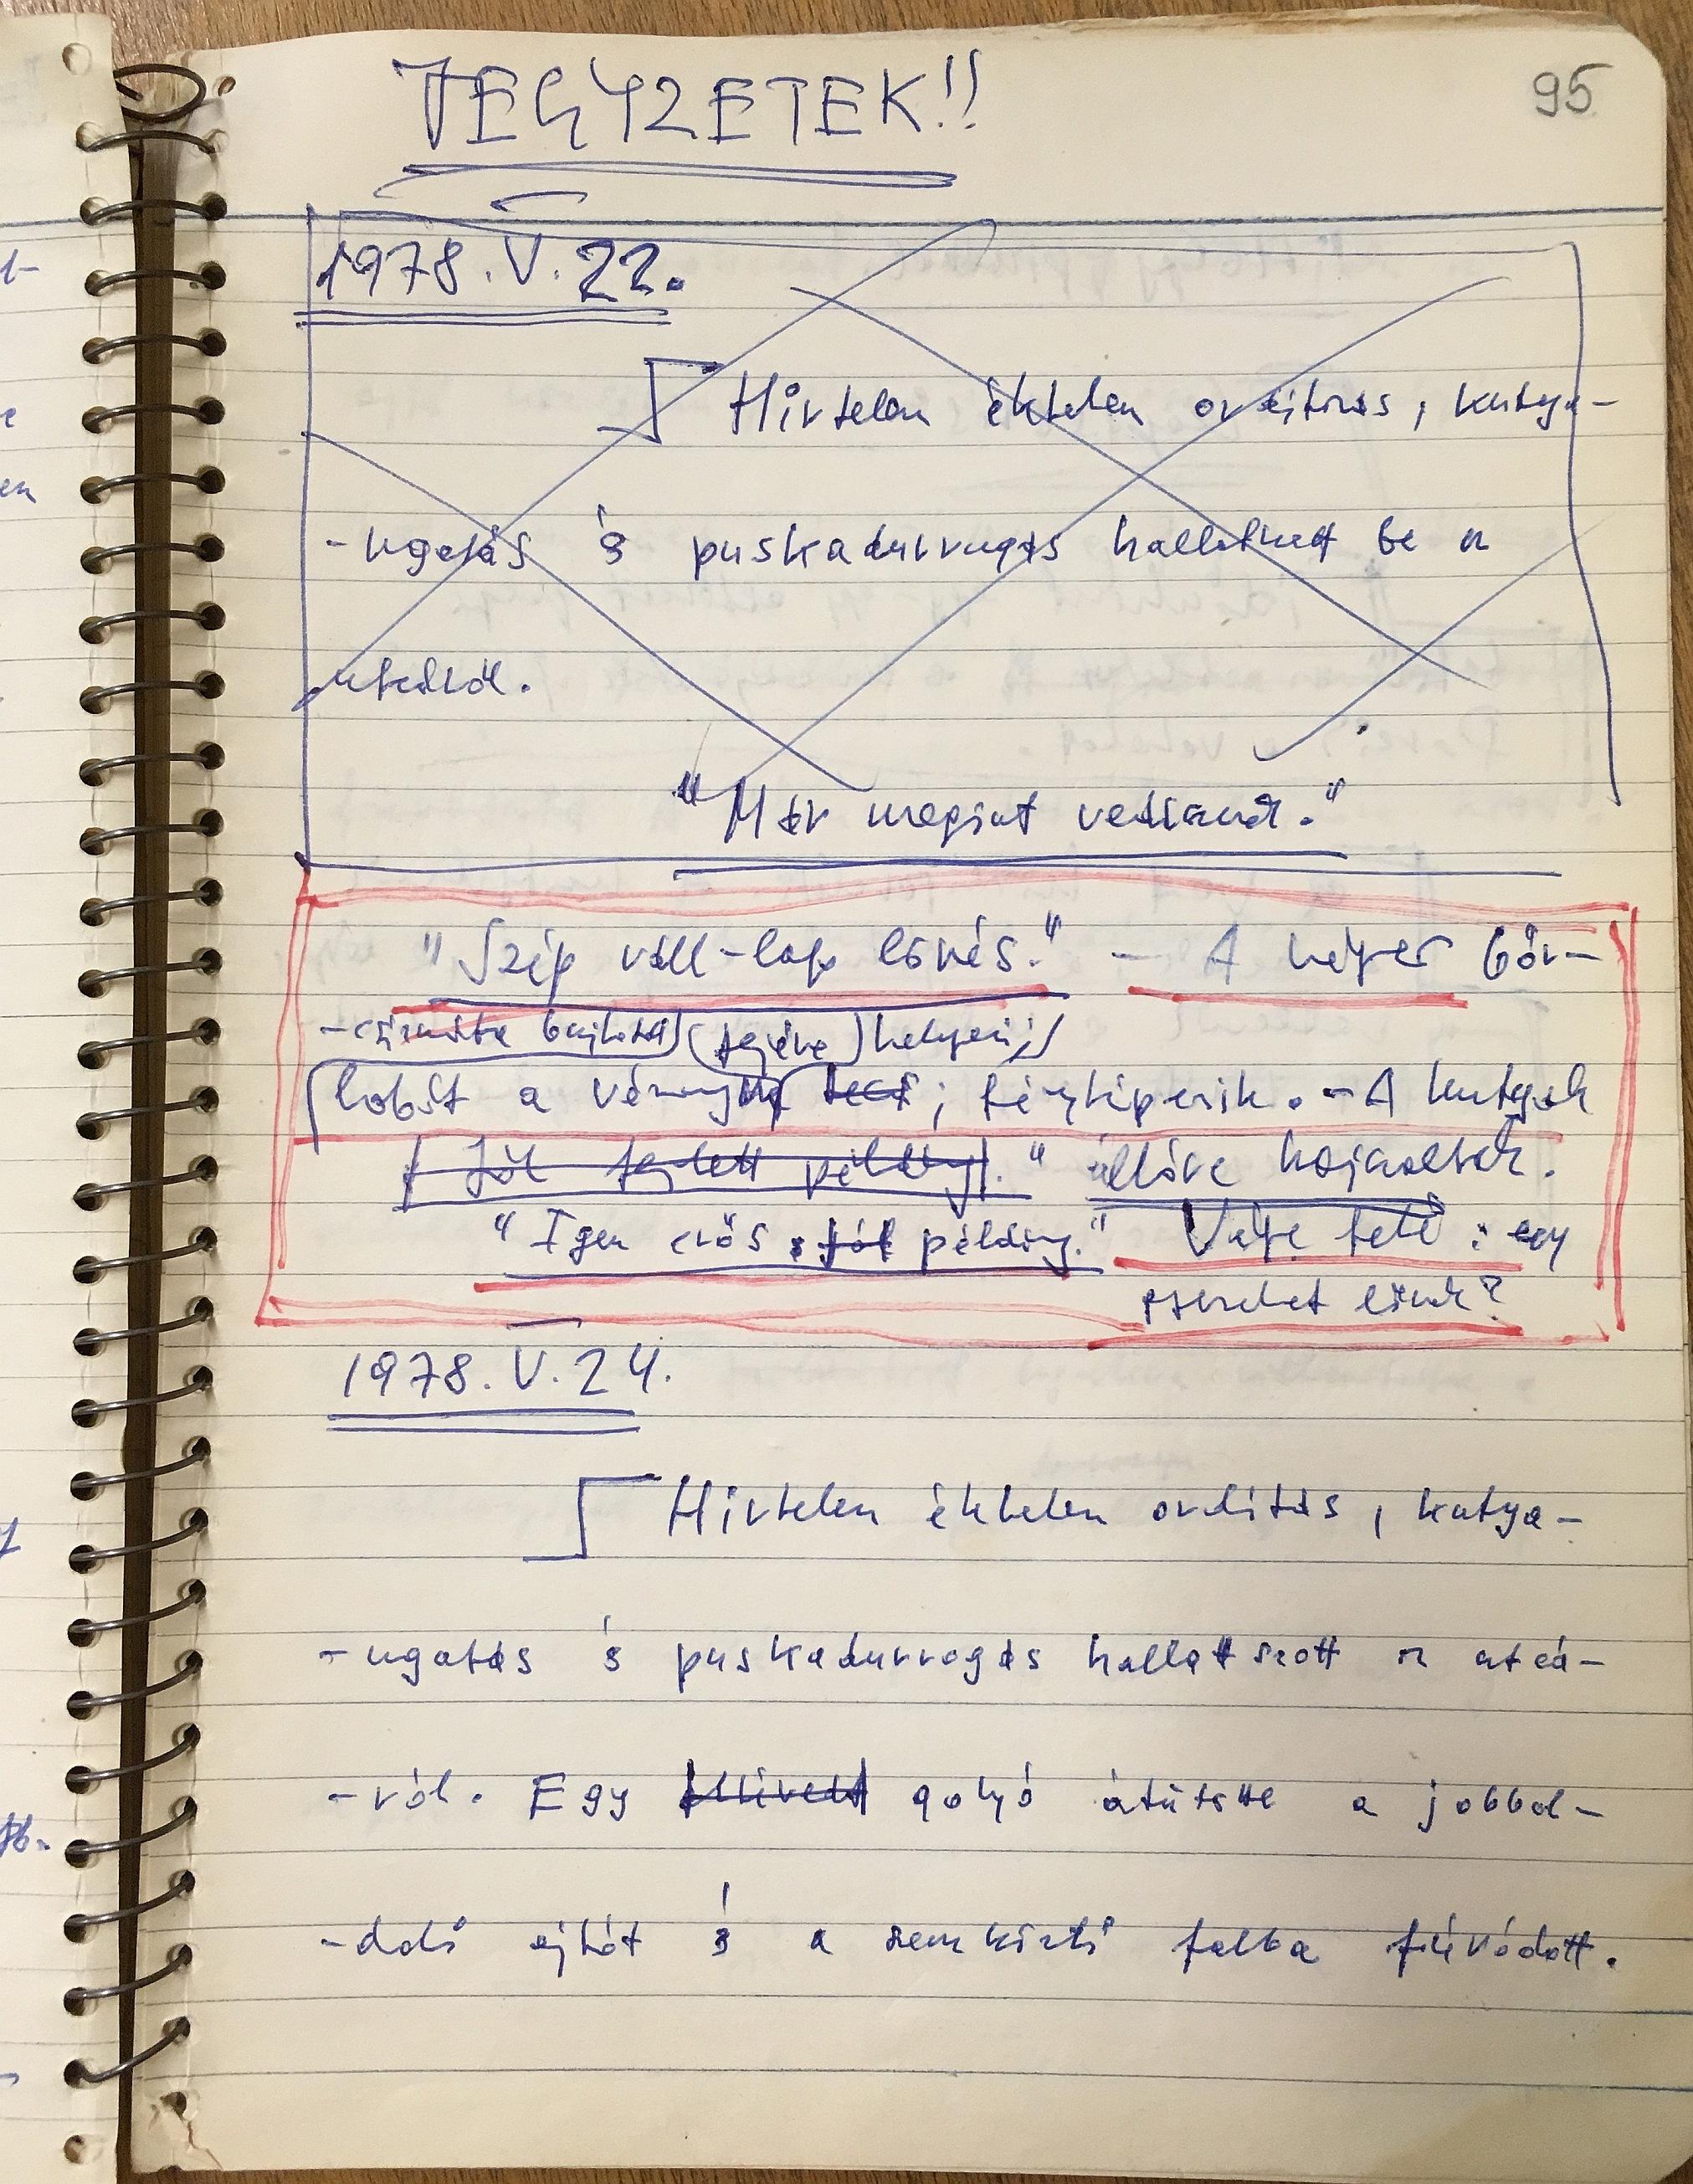 JEGYZETEK!!
95
1978. V. 22.
Hirtelen éktelen ordítás, kutya-
-ugatás és puskadurrogás be a
utcáról.
"Már megint vadásznak."
"Szép váll-lap lövés." – A néger bőr-
-csizmába bujtatott (fejére) helyezi;
lábát a vérnyom; fényképezik. – A kutyák
Jól fejlett példány." üllőre hajazltak.
"Igen erős, jól példány." Vajze tele: egy
szerelet lőnek?
1978. V. 24.
Hirtelen éktelen ordítás, kutya-
-ugatás és puskadurrogás hallatszott az utcá-
-ról. Egy golyó átütötte a jobbol-
-dali ajtót és a szemközti falba fúródott.